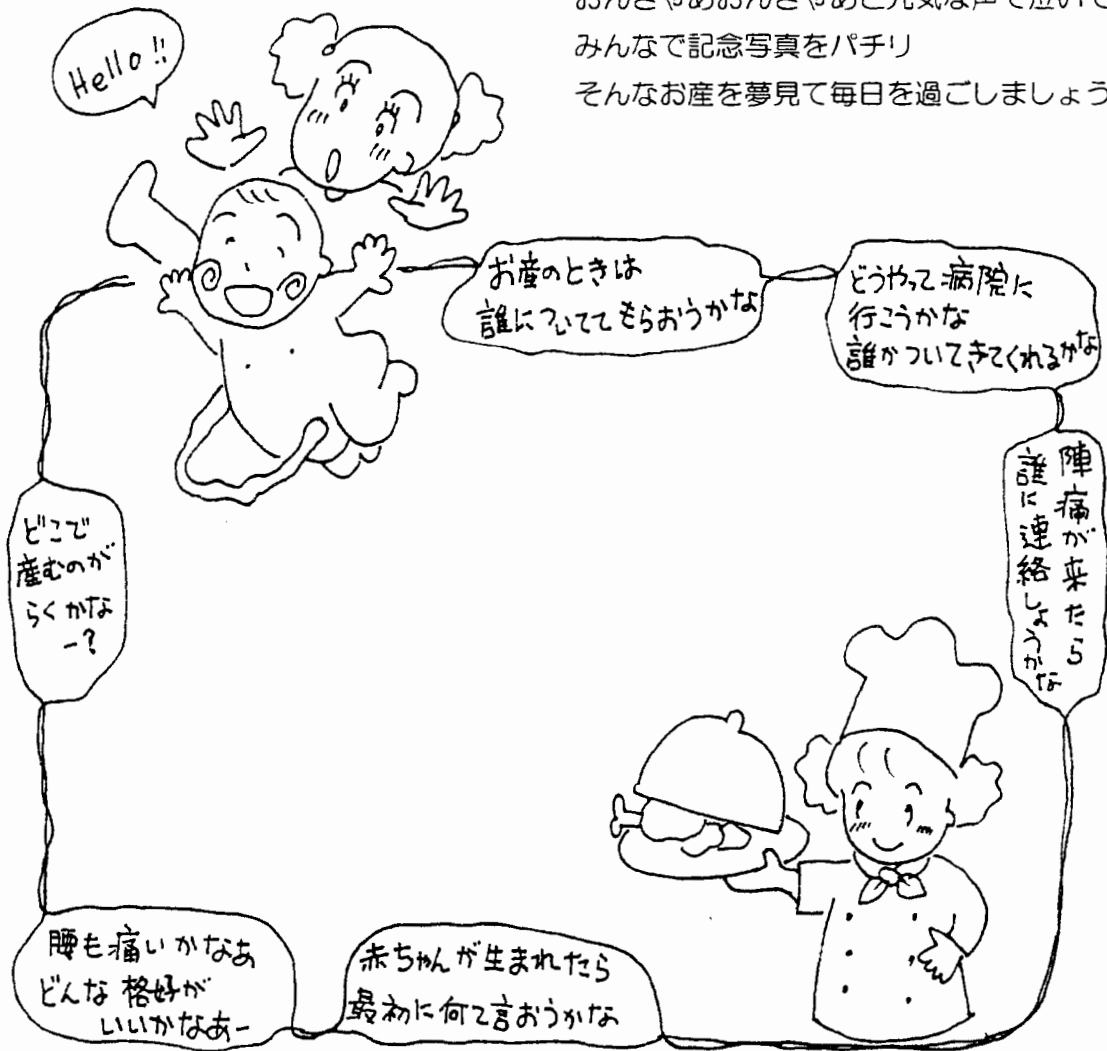 おんぎゃあおんぎゃあと元気な声で泣いて
みんなで記念写真をパチリ
そんなお産を夢見て毎日を過ごしましょう
Hello!!
お産のときは
誰についててもらおうかな
どうやって病院に
行こうかな
誰かついてきてくれるかな
陣痛が来たら
誰に連絡しようかな
どこで
産むのが
らくかな
ー?
腰も痛いかなあ
どんな格好が
いいかなあー
赤ちゃんが生まれたら
最初に何て言おうかな